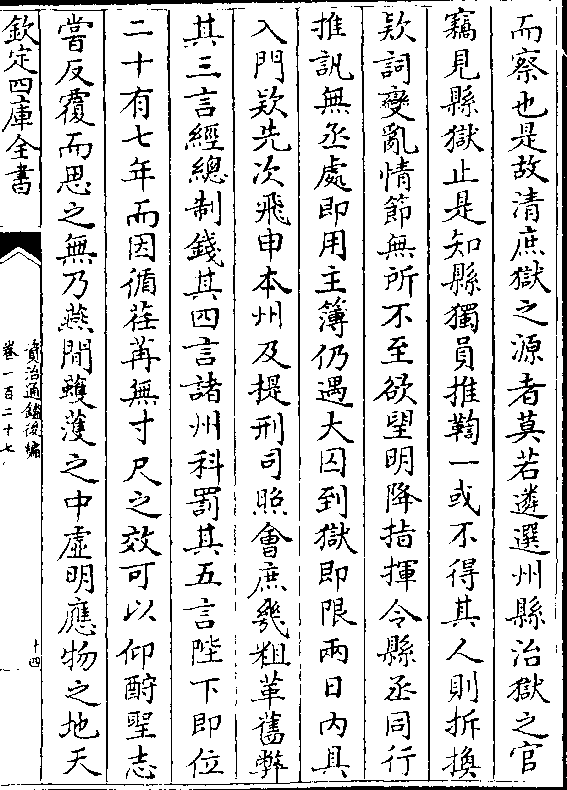 而察也是故清庶獄之源者莫若遴選州縣治獄之官
竊見縣獄止是知縣獨員推鞫一或不得其人則折換
欵詞變亂情節無所不至欲望明降指揮令縣丞同行
推訊無丞處即用主簿仍遇大囚到獄即限兩日內具
入門欵先次飛申本州及提刑司照會庶幾粗革舊弊
其三言經總制錢其四言諸州科罰其五言陛下即位
二十有七年而因循荏苒無寸尺之效可以仰酧聖志
嘗反覆而思之無乃燕間蠖濩之中虛明應物之地天
欽定四庫全書
資治通鑑後編
卷一百二十七
十四